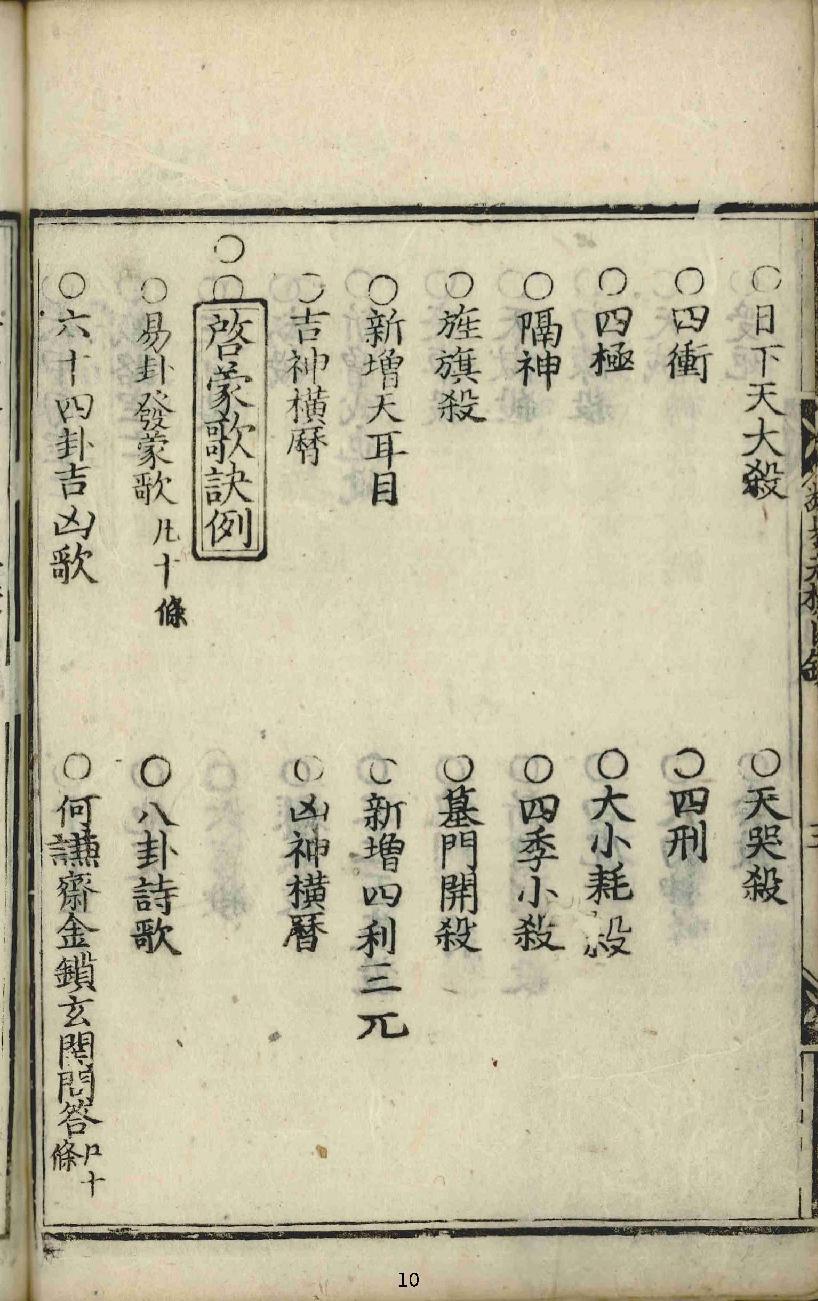 ○日下天大殺 ○天哭殺
○四衝 ○四刑
○四極 ○大小耗殺
○隔神 ○四季小殺
○旌旗殺 ○墓門開殺
○新增天耳目 ○新增四利三兀
○吉神橫曆 ○凶神橫曆
○○啓蒙歌訣例
○易卦發蒙歌 凡十條 ○八卦詩歌
○六十四卦吉凶歌 ○何謙齋金鎖玄関問答 十條
10